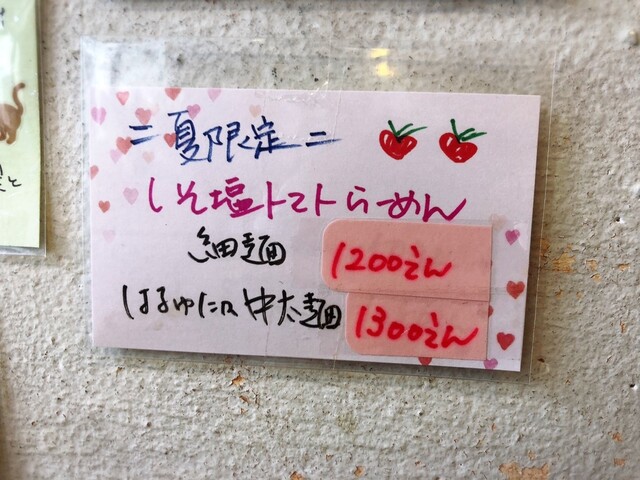 =夏限定=
しそ塩トマトらーめん
細麺 1200えん
はるゆたか中太麺 1300えん
と